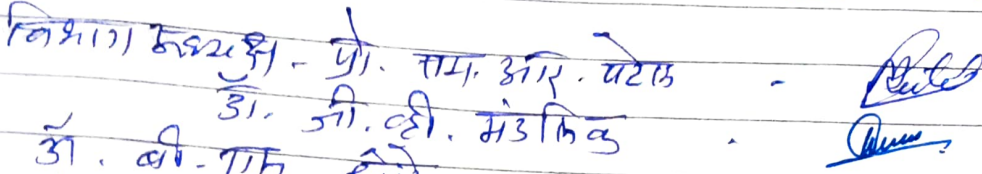 विभाग अध्यक्ष - प्रो. एम. आर. पटेल -
डॉ. जी. व्ही. मंडलिक .
डॉ. बी.